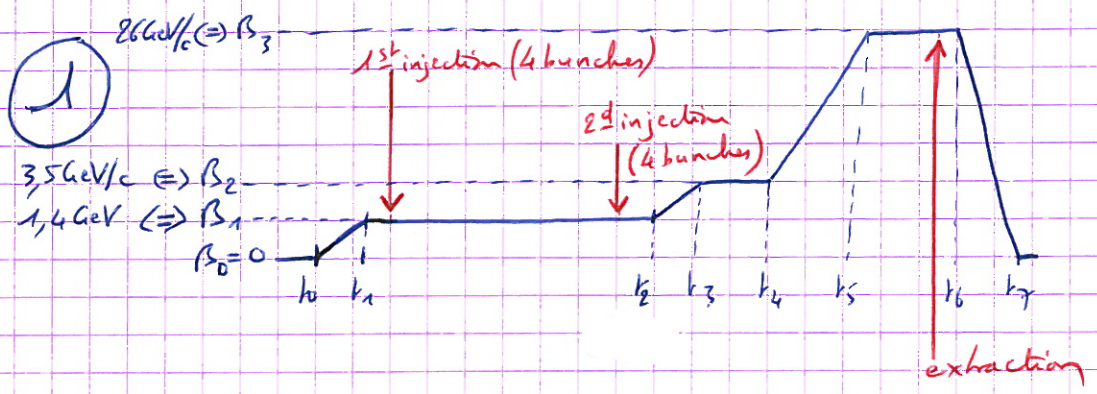 26 GeV/c (=) B3
1
1st injection (4 bunches)
2d injection
(4 bunches)
3,5 GeV/c (=) B2
1,4 GeV (=) B1
B0 = 0
t0 t1 t2 t3 t4 t5 t6 t7
extraction